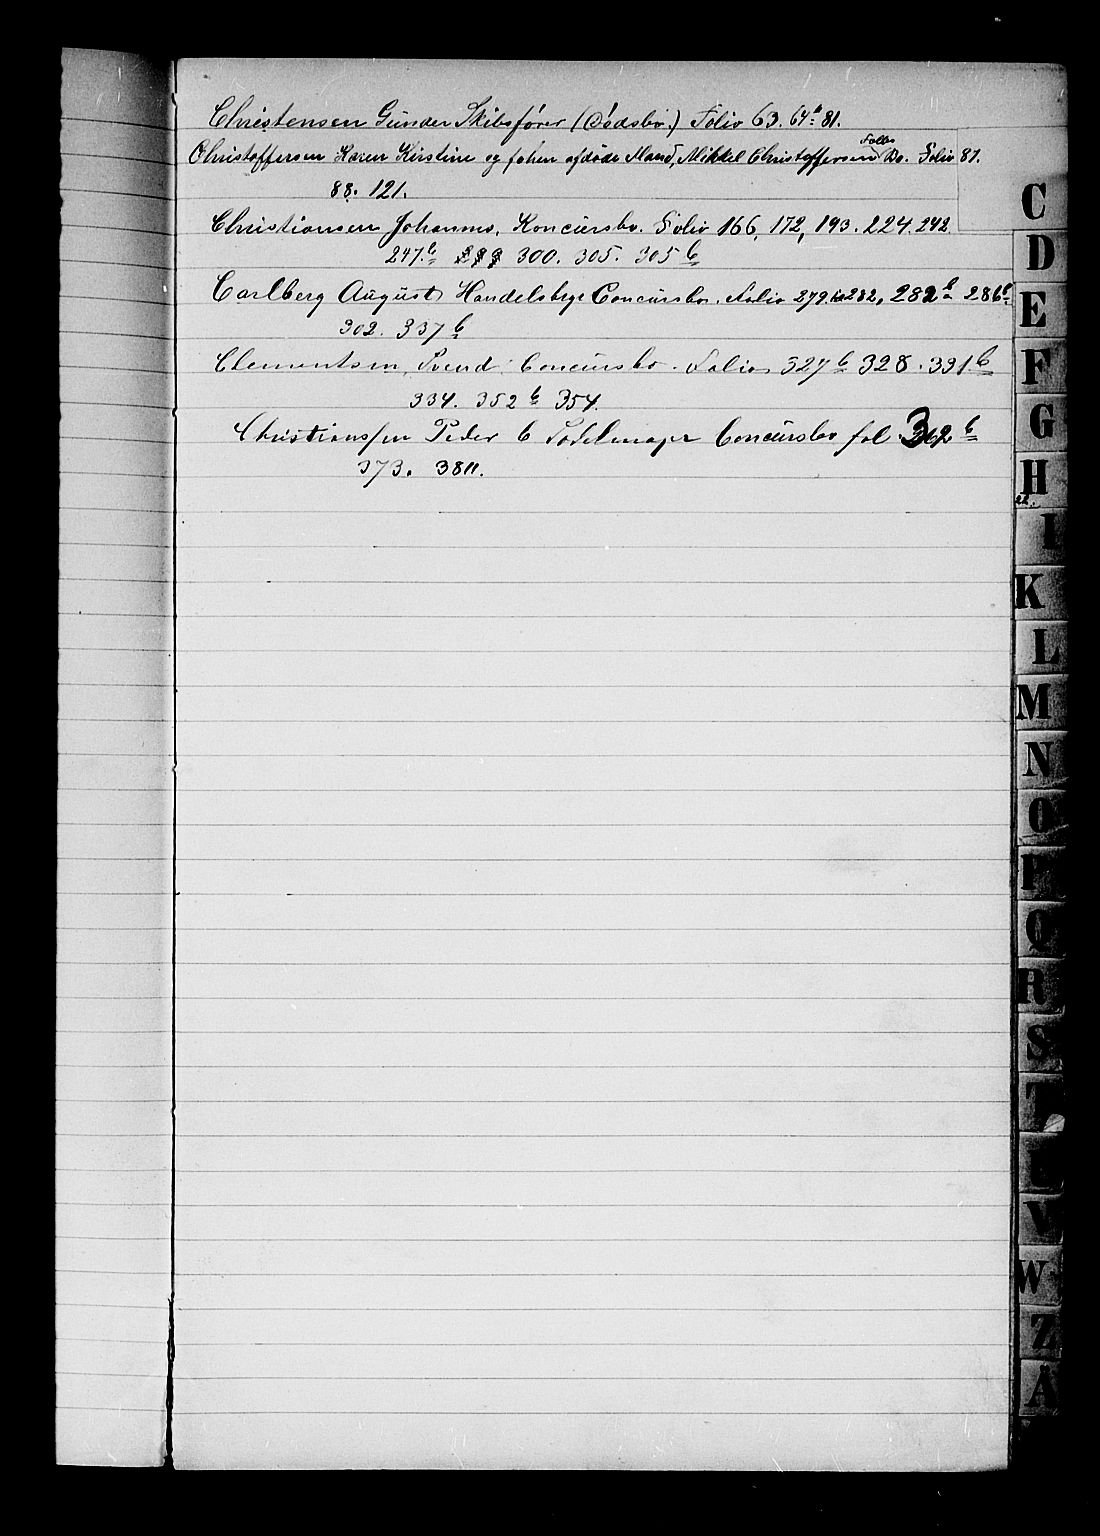 Christensen Gunder Skibsfører (Dødsbo.) Folio 63. 64b 81.
Christoffersen Karen Kirstine og fohen afdøde Mand, Mikkel Christoffersen Fælles Bo. Folio 87.
88. 121.
Christiansen Johannes, Koncursbo. Folio 166, 172, 193. 224. 242
247.b 300. 305. 305 b
Carlberg August Handelsbge Concursbo. Folio 279 282, 282b 286b
302. 337 b
Clementsen, Svend, Concursbo. Folio 327 b 328. 331.b
334. 352 b 354.
Christianssen Peder C Concursbo fol. b
373. 381.
C
D
E
F
G
H
I
K
L
M
N
O
P
Q
R
S
T
V
W
Z
Å